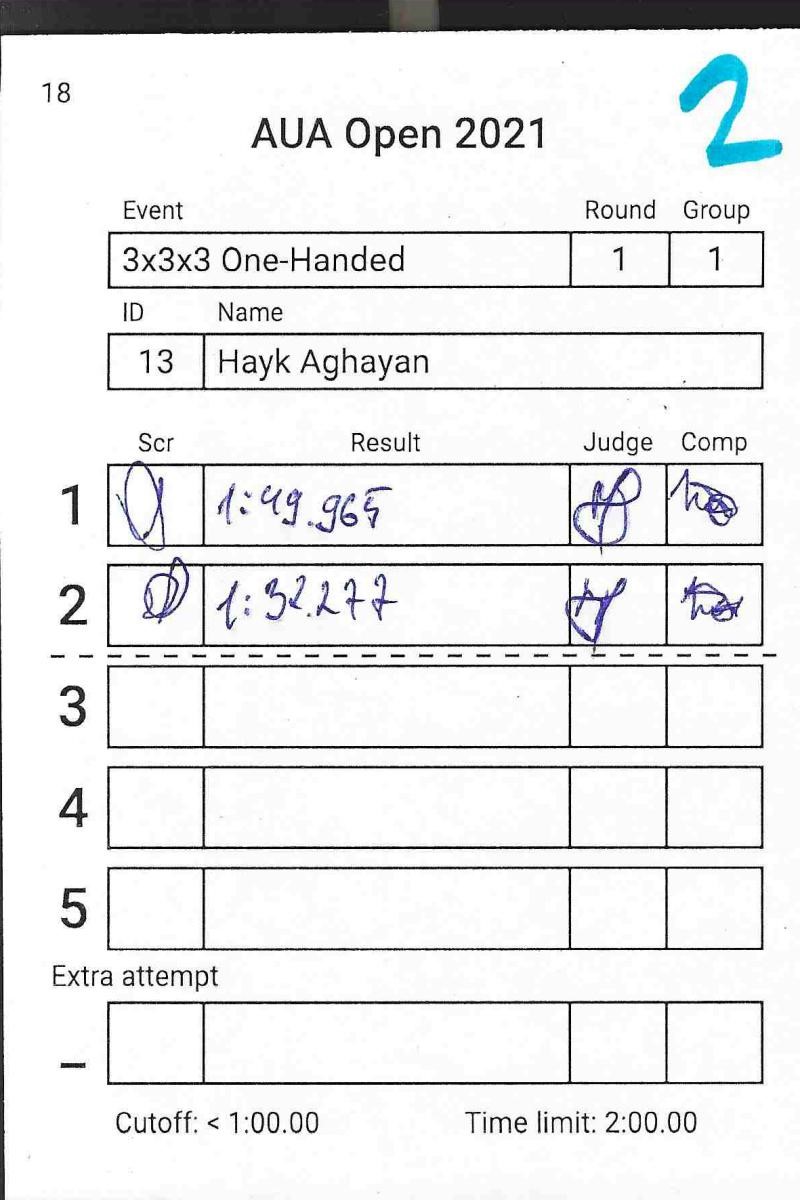 18
2
AUA Open 2021
Event Round Group
3x3x3 One-Handed 1 1
ID Name
13 Hayk Aghayan
Scr Result Judge Comp
1 1:49.965
2 1:32.277
3
4
5
Extra attempt
_
Cutoff: < 1:00.00 Time limit: 2:00.00